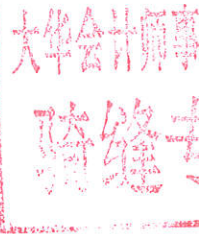 大华会计师事
骑缝